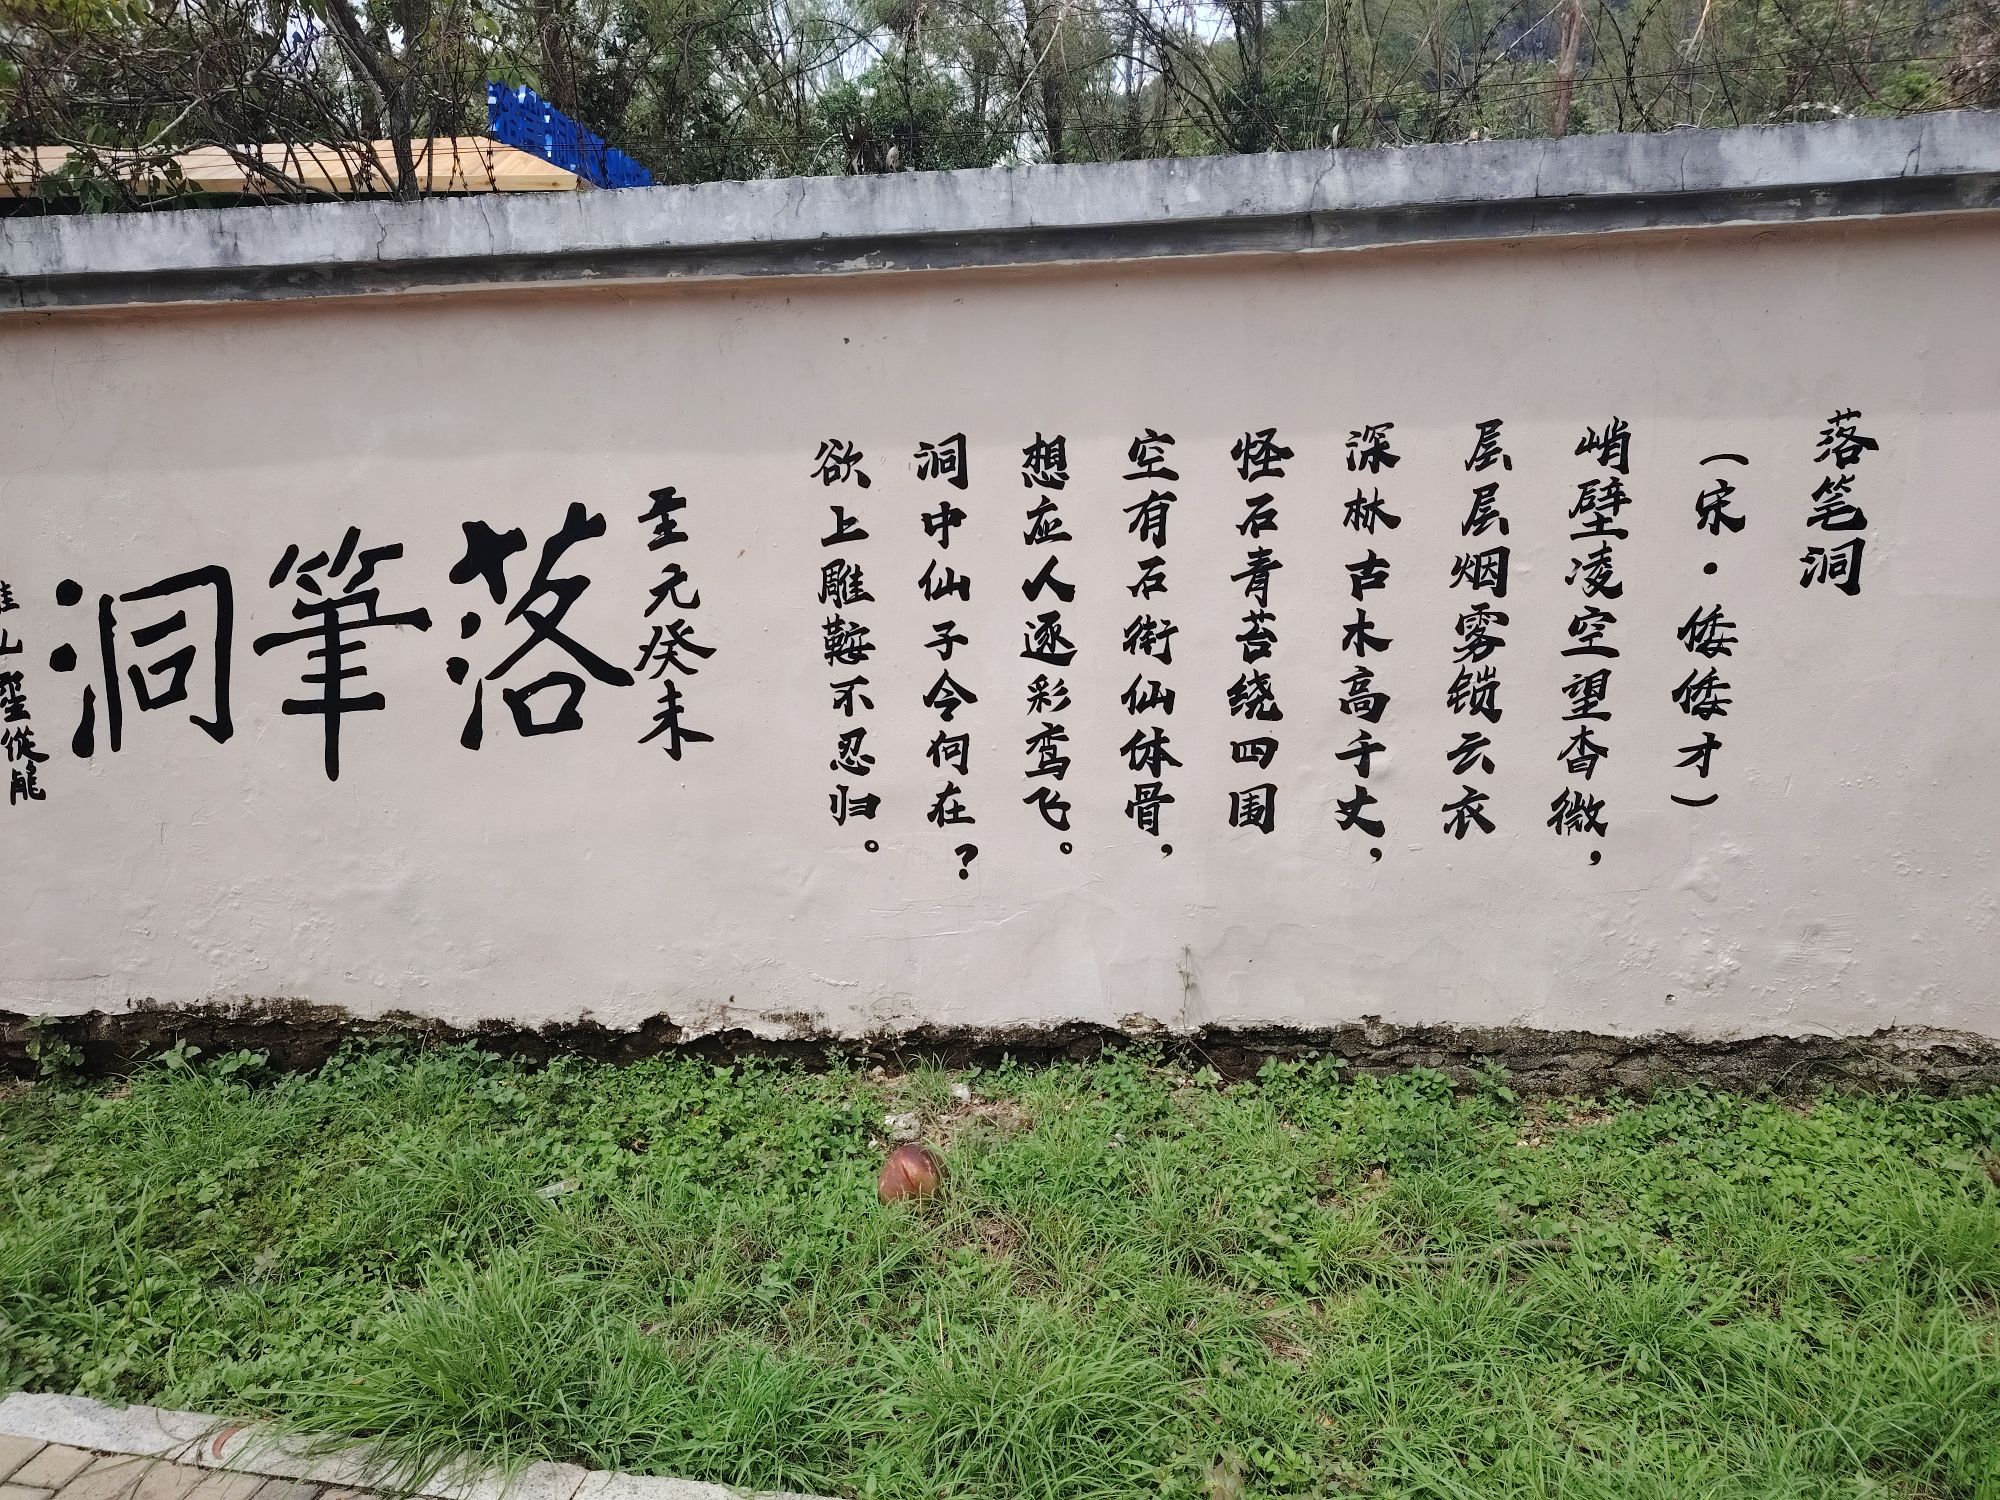 落笔洞
（宋·倭倭才）
峭壁凌空望杳微，
层层烟雾锁云衣
深林古木高千丈，
怪石青苔绕四围
空有石街仙体骨，
想应人逐彩鸾飞。
洞中仙子今何在？
欲上雕鞍不忍归。
至元癸未
落筆洞
山聖從龍